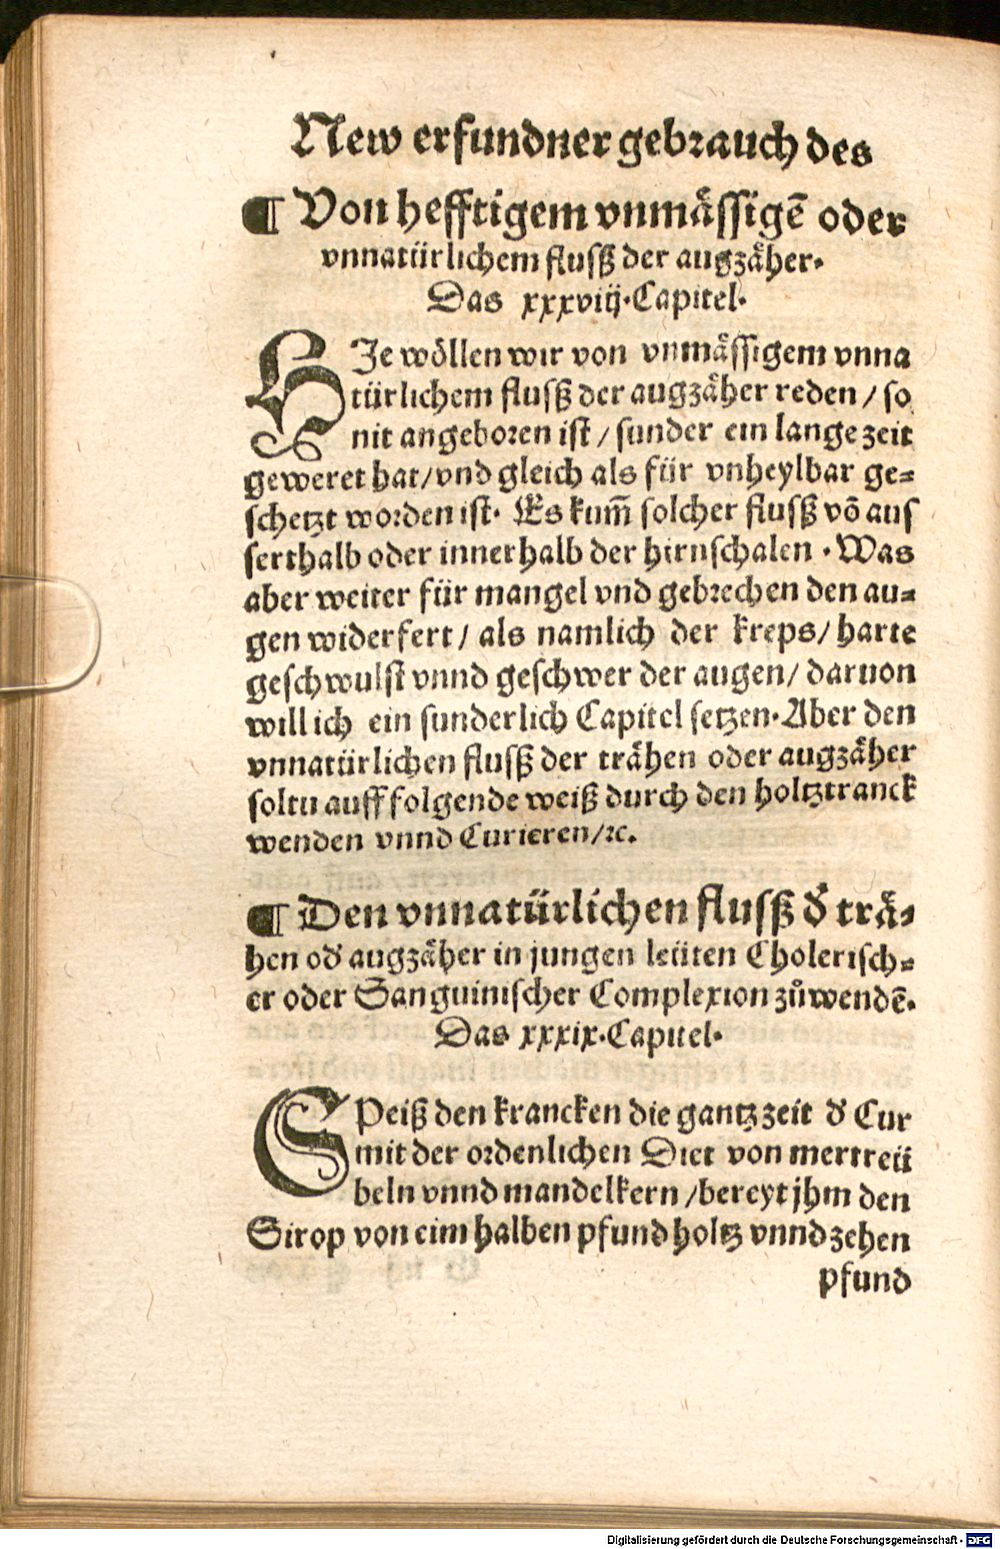 New erfundner gebrauch des
¶ Von hefftigem vnmässigē oder
vnnatürlichem flusß der augzäher.
Das xxxviij. Capitel.
HJe wöllen wir von vnmässigem vnna
türlichem flusß der augzäher reden / so
nit angeboren ist / sunder ein lange zeit
geweret hat / vnd gleich als für vnheylbar ge=
schetzt worden ist. Es kum̄ solcher flusß vō aus
serthalb oder innerhalb der hirnschalen . Was
aber weiter für mangel vnd gebrechen den au=
gen widerfert / als namlich der kreps / harte
geschwulst vnnd geschwer der augen / daruon
will ich ein sunderlich Capitel setzen. Aber den
vnnatürlichen flusß der trähen oder augzäher
soltu auff folgende weiß durch den holtztranck
wenden vnnd Curieren /ꝛc.
¶ Den vnnatürlichen flusß d̓ trä=
hen od̓ augzäher in jungen leüten Cholerisch=
er oder Sanguinischer Complexion zůwendē.
Das xxxix. Capitel.
SPeiß den krancken die gantz zeit d̓ Cur
mit der ordenlichen Diet von mertreü
beln vnnd mandelkern / bereyt jhm den
Sirop von eim halben pfund holtz vnnd zehen
pfund
Digitalisierung gefördert durch die Deutsche Forschungsgemeinschaft - DFG